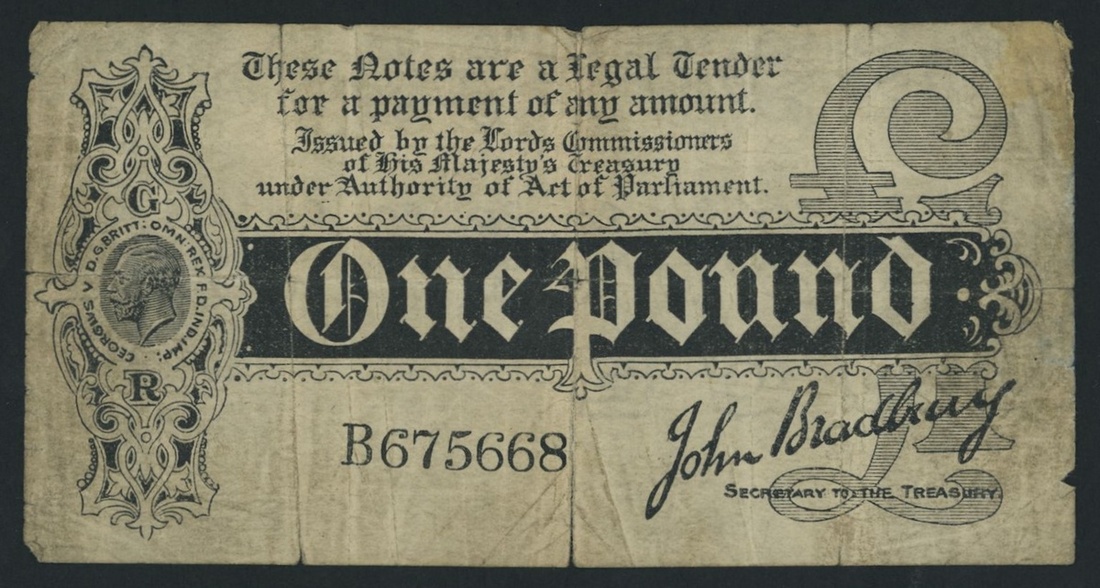 These Notes are a Legal Tender
for a payment of any amount.
Issued by the Lords Commissioners
of His Majesty's Treasury
under Authority of Act of Parliament.
£1
G
GEORGIVS V D.G.BRITT: OMN: REX F.D. IND: IMP:
R
One Pound
B675668
John Bradbury
SECRETARY TO THE TREASURY.
£1